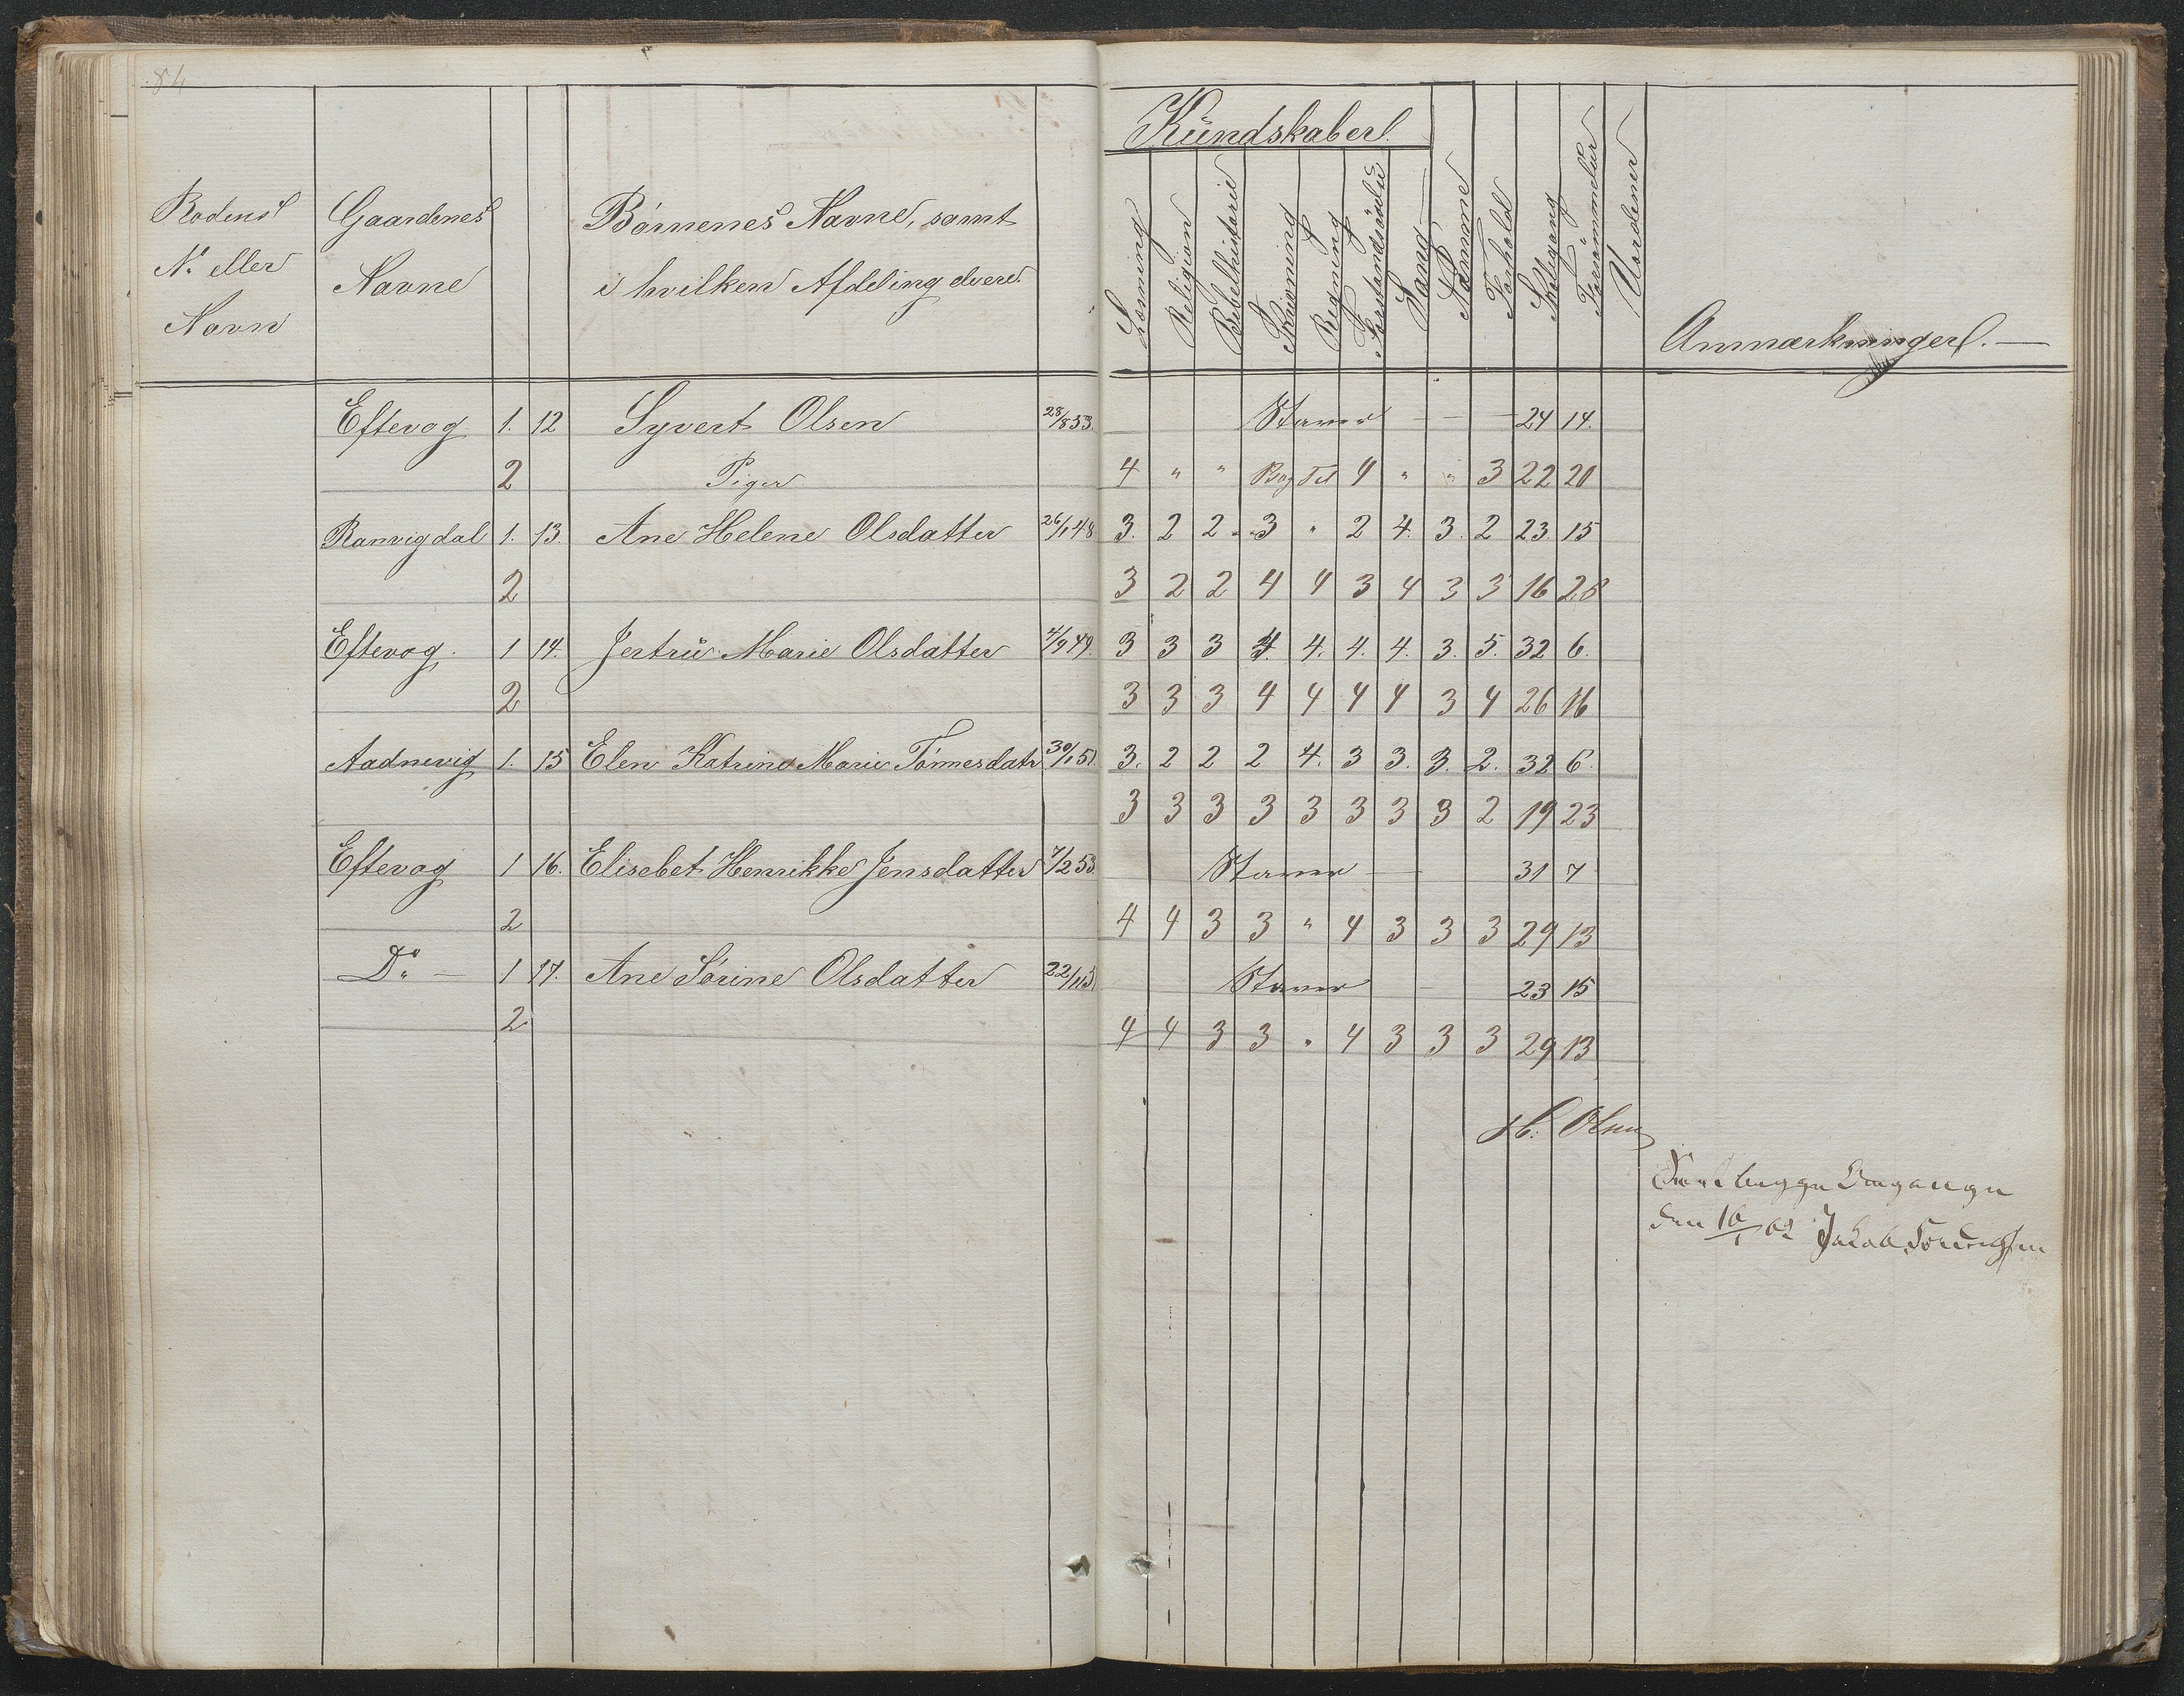 84
Rodens
No eller
Navn
Gaardenes
Navne
Börnenes Navne, samt
i hvilken Afdeling de ere.
Kundskaber.
Læsning
Religion
Bibelhistorie
Skrivning
Regning
Forstandsövelse
Sang
Nemme
Forhold
Skolegang
Forsömmelser
Uordener
Anmærkninger. —
Eftevog 1. 12 Syvert Olsen 28/8 53. Staver — — 24 14.
2 Piger 4 " " Bog Tel 4 " " 3 22 20
Ranvigdal 1. 13. Ane Helene Olsdatter 26/1 48 3. 2 2 3 " 2 4. 3. 2 23. 15
2 3 2 2 4 4 3 4 3 3 16 28
Eftevog. 1 14. Jertrü Marie Olsdatter 4/9 49. 3 3 3 4. 4. 4. 4. 3. 5. 32 6.
2 3 3 3 4 4 4 4 3 4 26 16
Aadnevig 1. 15 Elen Katrine Marie Tönnesdatr 30/1 51. 3. 2 2 2 4. 3 3. 3. 2. 32 6.
3 3 3 3 3 3 3 3 2 19 23
Eftevog 1 16. Elisebet Henrikke Jensdatter 7/2 53. Staver — 31 7
2 4 4 3 3 " 4 3 3 3 29 13
Do — 1 17. Ane Sörine Olsdatter 22/11 Staver 23 15
2 4 4 3 3 " 4 3 3 3 29 13
H. Olsen
begge Omgange
den 16/1 62 Jakob